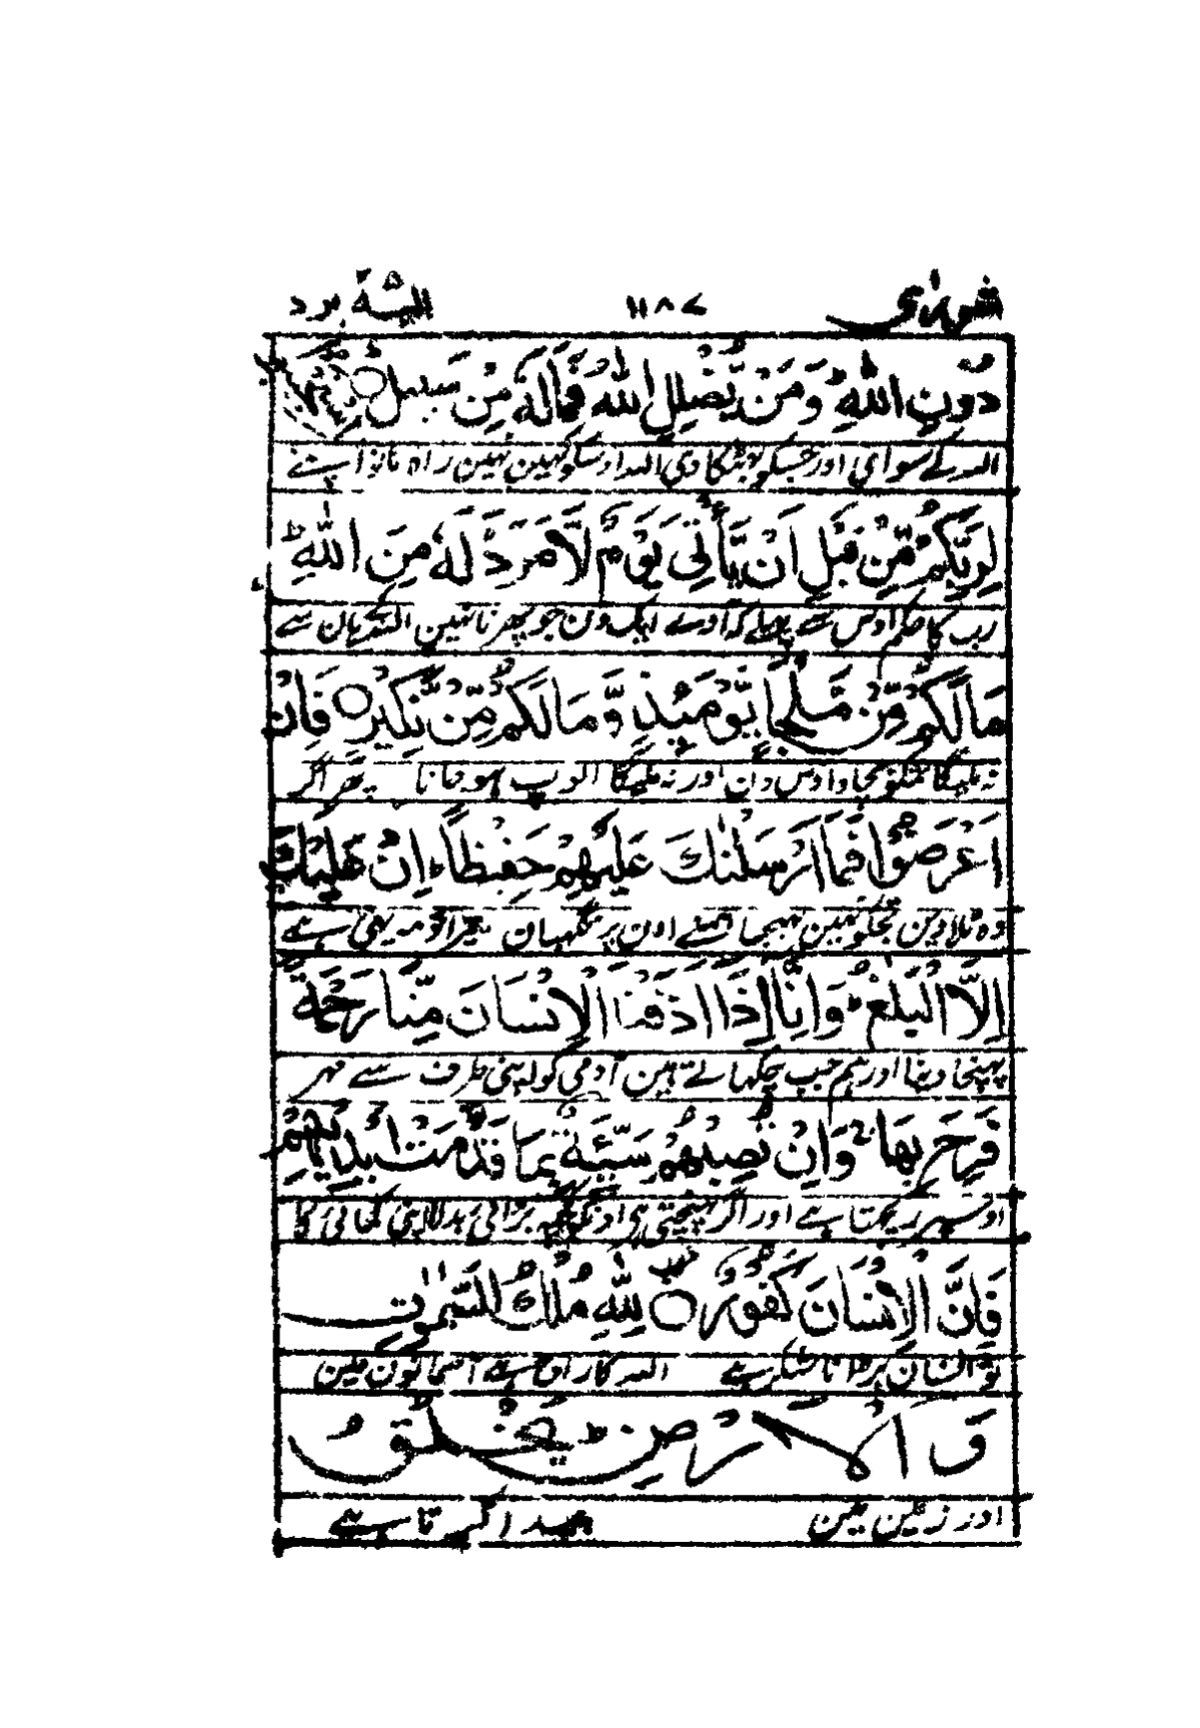 شورىٰ ١١٨٧ اليه يرد
دُوْنِ اللّٰهِ ؕ وَمَنْ يُّضْلِلِ اللّٰهُ فَمَا لَهٗ مِنْ سَبِيْلٍ ؕ
الله کے سوای اور جسکو بھٹکا دی الله اوسکو کہین نہین راہ مانو اپنے
لِرَبِّكُمْ مِّنْ قَبْلِ اَنْ يَّأْتِىَ يَوْمٌ لَّا مَرَدَّ لَهٗ مِنَ اللّٰهِ ؕ
رب کا حکم اوس سے پہلے کہ آوے ایک دن جو پھرنا نہین الله کے ہان سے
مَا لَكُمْ مِّنْ مَّلْجَاٍ يَّوْمَئِذٍ وَّمَا لَكُمْ مِّنْ نَّكِيْرٍ ۝ فَاِنْ
نہ ملیگا تمکو بچاو اوس دن اور نہ ملیگا الوپ ہو جانا پھر اگر
اَعْرَضُوْا فَمَا اَرْسَلْنٰكَ عَلَيْهِمْ حَفِيْظًا ؕ اِنْ عَلَيْكَ
وہ ٹلاوین تجکو نہین بھیجا ہمنے اون پر نگہبان تیرا ذمہ یہی ہے
اِلَّا الْبَلٰغُ ؕ وَاِنَّا اِذَا اَذَقْنَا الْاِنْسَانَ مِنَّا رَحْمَةً
پہنچا دینا اور ہم جب چکہاتے ہین آدمی کو اپنی طرف سے مہر
فَرِحَ بِهَا ۚ وَاِنْ تُصِبْهُمْ سَيِّئَةٌ بِمَا قَدَّمَتْ اَيْدِيْهِمْ
اوسپر ریجھتا ہے اور اگر پہنچتی ہی اونکو کچھ برائی بدلا اپنی کمائی کا
فَاِنَّ الْاِنْسَانَ كَفُوْرٌ ۝ لِلّٰهِ مُلْكُ السَّمٰوٰتِ
تو انسان بڑا ناشکر ہے الله کا راج ہے آسمانون مین
وَالْاَرْضِ ؕ يَخْلُقُ
اور زمین مین پیدا کرتا ہے